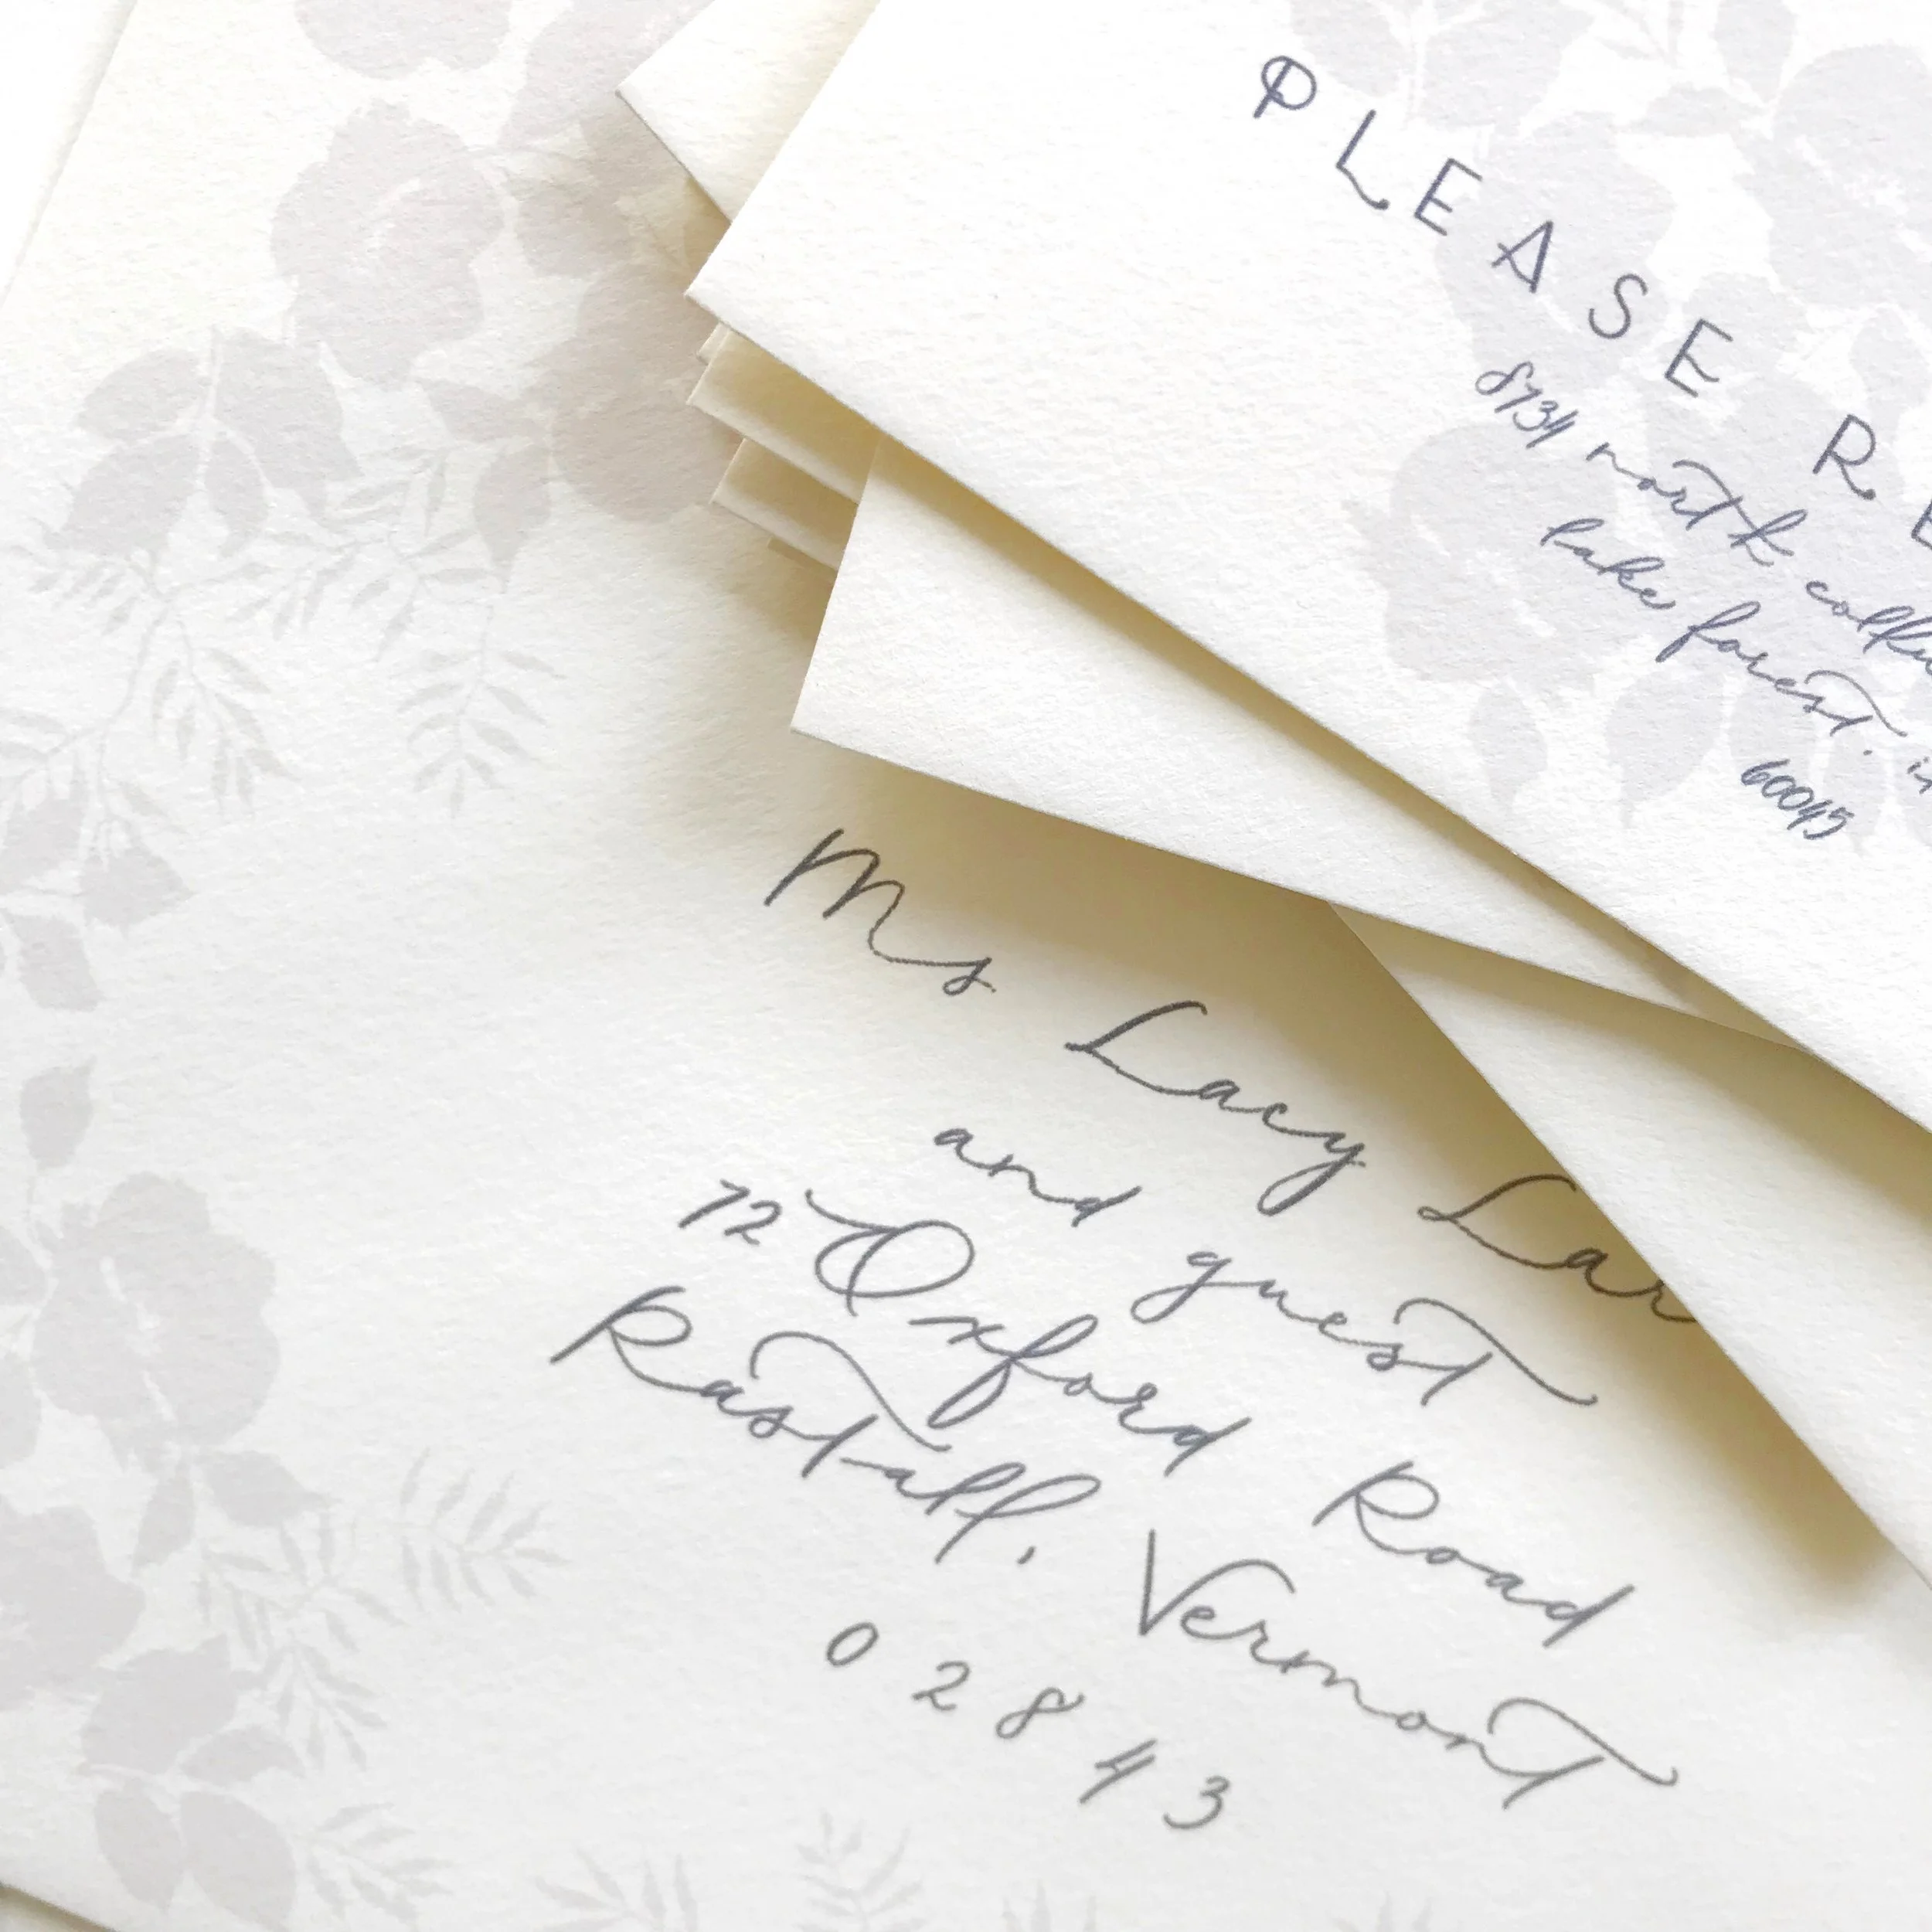 PLEASE
8734 north
lake forest,
60045
Ms Lacy
and guest
72 Oxford Road
Rastall, Vermont
02843